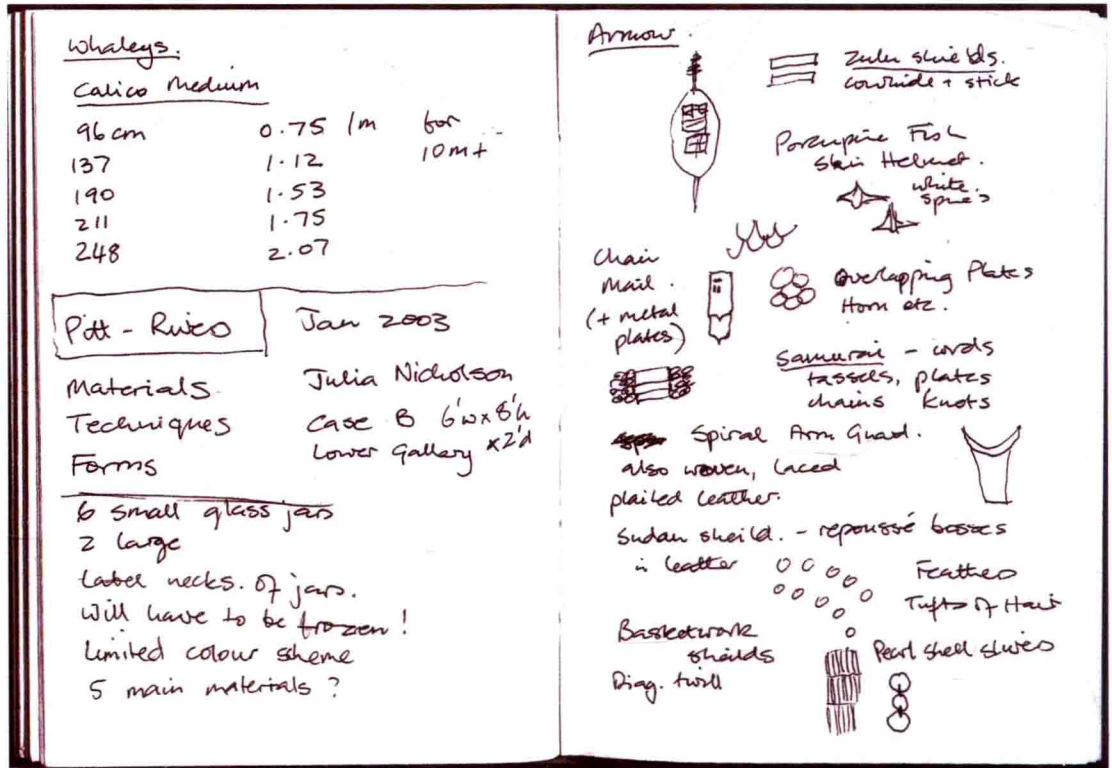 Whaleys.
Calico Medium
96cm 0.75 /m for
137 1.12 10m+
190 1.53
211 1.75
248 2.07
Pitt-Rivers Jan 2003
Materials Julia Nicholson
Techniques Case B 6'w x 8'h
Forms Lower Gallery x 2'd
6 small glass jars
2 large
Label necks. of jars.
Will have to be frozen!
Limited colour scheme
5 main materials?
Armour.
Zulu shields.
cowhide + stick
Porcupine Fish
Skin Helmet.
white
spines
Chain
Mail.
(+ metal
plates)
Overlapping Plates
Horn etc.
Samurai - cords
tassels, plates
chains knots
Spiral Arm Guard.
also woven, laced
plaited leather.
Sudan sheild. - repoussé bosses
in leather
Feathers
Tufts of Hair
Basketwork
sheilds
Diag. twill
Pearl shell slivers